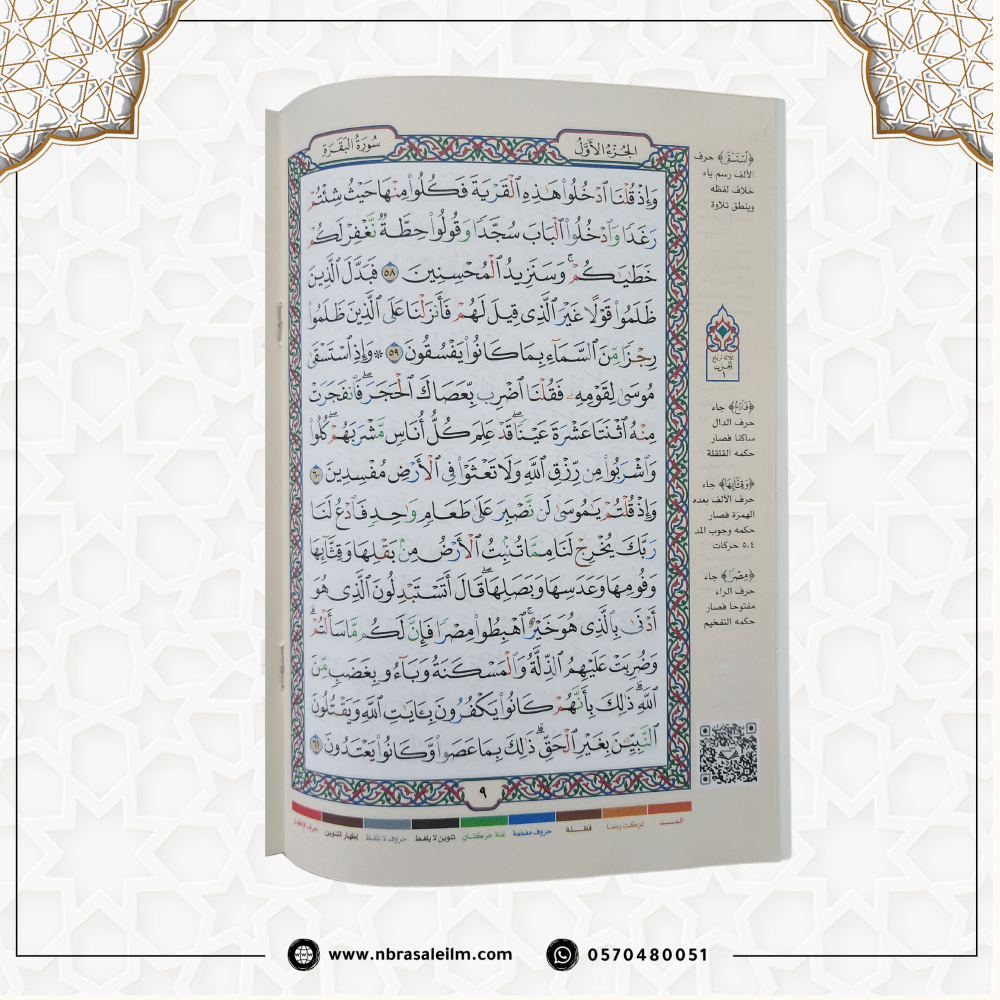 سُورَةُ البَقَرَةِ
الجُزْءُ الأَوَّلُ
وَإِذْ قُلْنَا ٱدْخُلُوا۟ هَٰذِهِ ٱلْقَرْيَةَ فَكُلُوا۟ مِنْهَا حَيْثُ شِئْتُمْ
رَغَدًا وَٱدْخُلُوا۟ ٱلْبَابَ سُجَّدًا وَقُولُوا۟ حِطَّةٌ نَّغْفِرْ لَكُمْ
خَطَٰيَٰكُمْ ۚ وَسَنَزِيدُ ٱلْمُحْسِنِينَ ٥٨ فَبَدَّلَ ٱلَّذِينَ
ظَلَمُوا۟ قَوْلًا غَيْرَ ٱلَّذِى قِيلَ لَهُمْ فَأَنزَلْنَا عَلَى ٱلَّذِينَ ظَلَمُوا۟
رِجْزًا مِّنَ ٱلسَّمَآءِ بِمَا كَانُوا۟ يَفْسُقُونَ ٥٩ * وَإِذِ ٱسْتَسْقَىٰ
مُوسَىٰ لِقَوْمِهِۦ فَقُلْنَا ٱضْرِب بِّعَصَاكَ ٱلْحَجَرَ ۖ فَٱنفَجَرَتْ
مِنْهُ ٱثْنَتَا عَشْرَةَ عَيْنًا ۖ قَدْ عَلِمَ كُلُّ أُنَاسٍ مَّشْرَبَهُمْ ۖ كُلُوا۟
وَٱشْرَبُوا۟ مِن رِّزْقِ ٱللَّهِ وَلَا تَعْثَوْا۟ فِى ٱلْأَرْضِ مُفْسِدِينَ ٦٠
وَإِذْ قُلْتُمْ يَٰمُوسَىٰ لَن نَّصْبِرَ عَلَىٰ طَعَامٍ وَٰحِدٍ فَٱدْعُ لَنَا
رَبَّكَ يُخْرِجْ لَنَا مِمَّا تُنۢبِتُ ٱلْأَرْضُ مِنۢ بَقْلِهَا وَقِثَّآئِهَا
وَفُومِهَا وَعَدَسِهَا وَبَصَلِهَا ۖ قَالَ أَتَسْتَبْدِلُونَ ٱلَّذِى هُوَ
أَدْنَىٰ بِٱلَّذِى هُوَ خَيْرٌ ۚ ٱهْبِطُوا۟ مِصْرًا فَإِنَّ لَكُم مَّا سَأَلْتُمْ ۗ
وَضُرِبَتْ عَلَيْهِمُ ٱلذِّلَّةُ وَٱلْمَسْكَنَةُ وَبَآءُو بِغَضَبٍ مِّنَ
ٱللَّهِ ۗ ذَٰلِكَ بِأَنَّهُمْ كَانُوا۟ يَكْفُرُونَ بِـَٔايَٰتِ ٱللَّهِ وَيَقْتُلُونَ
ٱلنَّبِيِّـۧنَ بِغَيْرِ ٱلْحَقِّ ۗ ذَٰلِكَ بِمَا عَصَوا۟ وَّكَانُوا۟ يَعْتَدُونَ ٦١
٩
﴿ٱسْتَسْقَىٰ﴾ حرف
الألف رسم ياء
خلاف لفظه
وينطق تلاوة
﴿فَٱدْعُ﴾ جاء
حرف الدال
ساكنا فصار
حكمه القلقلة
﴿وَقِثَّآئِهَا﴾ جاء
حرف الألف بعده
الهمزة فصار
حكمه وجوب المد
٥،٤ حركات
﴿مِصْرًا﴾ جاء
حرف الراء
مفتوحا فصار
حكمه التفخيم
المـــد
تركت رسما
قلقـــلة
حروف مفخمة
غنة حركتـان
تنوين لا يلفظ
حروف لا تلفظ
إظهار التنوين
www.nbrasaleilm.com
0570480051